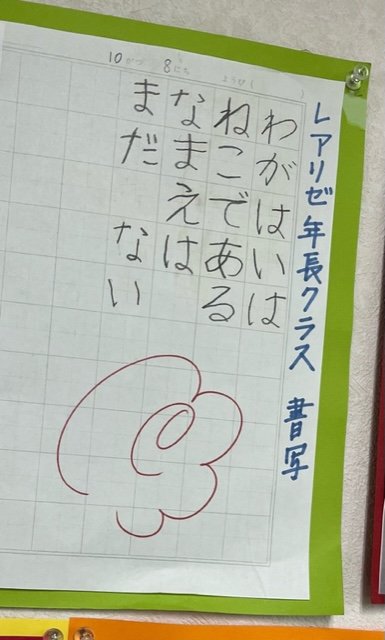 レアリゼ年長クラス 書写
10がつ 8にち ようび( )
わがはいは
ねこである
なまえは
まだ ない